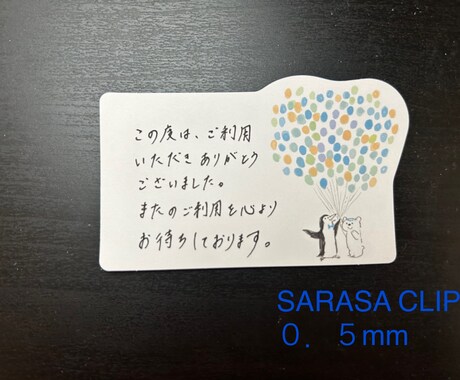 この度は、ご利用
いただきありがとう
ございました。
またのご利用を心より
お待ちしております。
SARASA CLIP
０．５mm